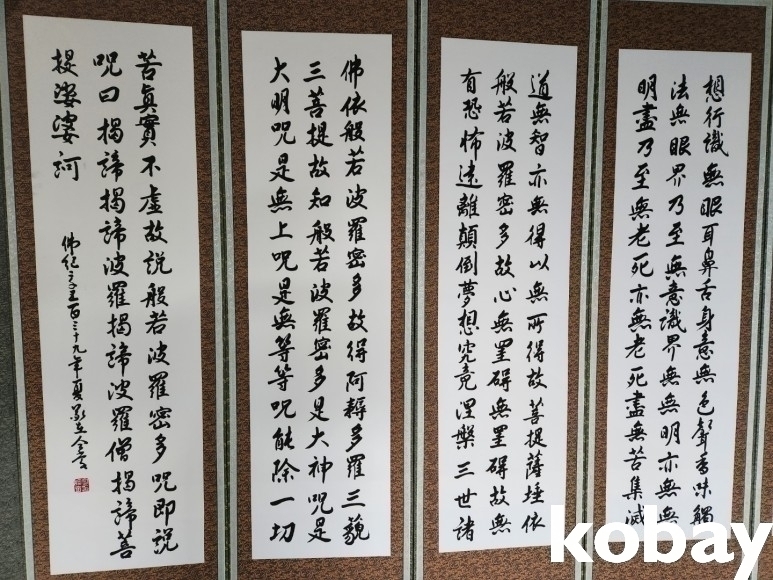 想行識無眼耳鼻舌身意無色聲香味觸
法無眼界乃至無意識界無無明亦無無
明盡乃至無老死亦無老死盡無苦集滅
道無智亦無得以無所得故菩提薩埵依
般若波羅密多故心無罣碍無罣碍故無
有恐怖遠離顛倒夢想究竟涅槃三世諸
佛依般若波羅密多故得阿耨多羅三藐
三菩提故知般若波羅密多是大神呪是
大明呪是無上呪是無等等呪能除一切
苦眞實不虛故說般若波羅密多呪即說
呪曰揭諦揭諦波羅揭諦波羅僧揭諦菩
提娑婆訶
佛紀二五百三十九年夏
kobay